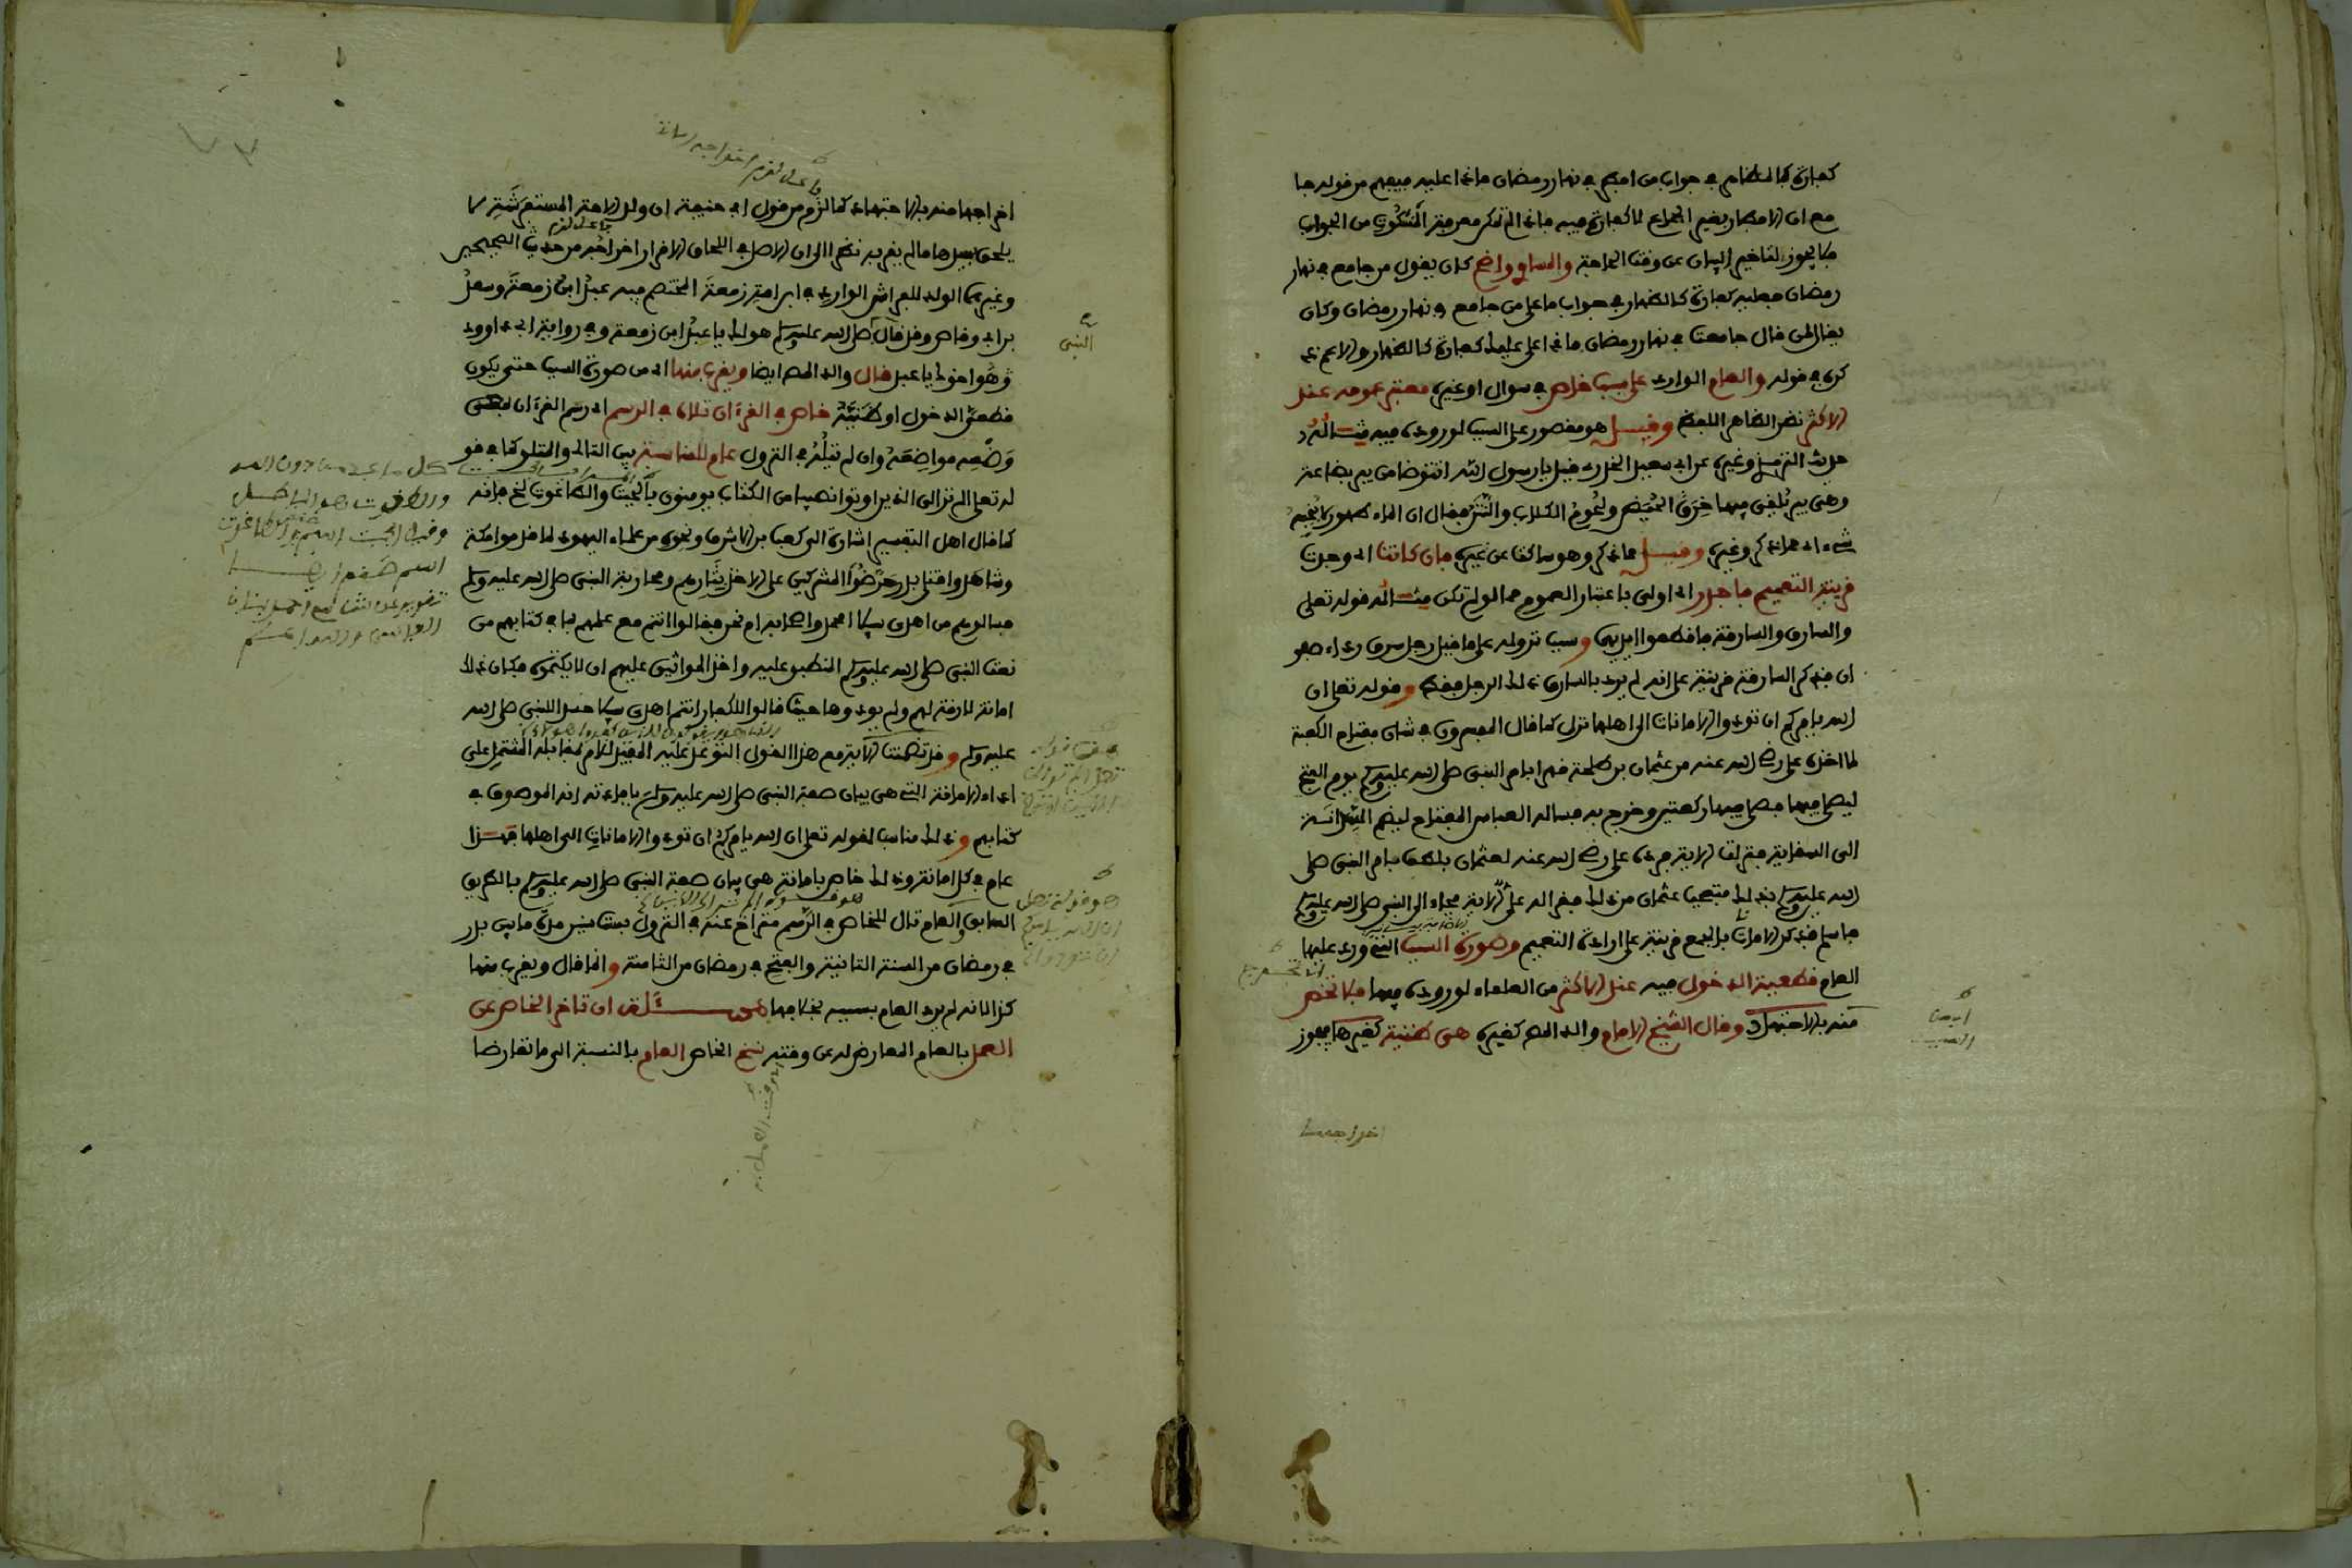 كفارة كالمظاهر في جواب من افطر في نهار رمضان ماذا عليه فيفهم من قوله جا
مع ان الافطار بغير الجماع لا كفارة فيه فاذا لم تمكن معرفة المسكوت من الجواب
فلا يجوز لتاخير البيان عن وقت الحاجة والمساوي واضح كان يقول من جامع في نهار
رمضان فعليه كفارة كالظهار في جواب ما على من جامع في نهار رمضان وكان
يقال لمن قال جامعت في نهار رمضان ماذا علي عليك كفارة كالظهار والاعم ذ
كره في قوله والعام الوارد على سبب خاص في سوال او غيره معتبر عمومه عند
الاكثر نظرا لظاهر اللفظ وقيل هو مقصور على السبب لوروده فيه مثاله
حديث الترمذي وغيره عن ابي سعيد الخدري قيل يا رسول الله انتوضا من بير بضاعة
وهي بير يلقى فيها خرق الحيض ولحوم الكلاب والنتن فقال ان الماء طهور لا ينجسه
شيء اي مما ذكر وغيره وقيل مما ذكر وهو ساكت عن غيره فان كانت اي وجدت
قرينة التعميم فاجدر اي اولى باعتبار العموم مما لو لم تكن مثاله قوله تعلى
والسارق والسارقة فاقطعوا ايديهما وسبب نزوله على ما قيل رجل سرق رداء صفو
ان فذكر السارقة قرينة على انه لم يرد بالسارق ذلك الرجل فقط وقوله تعلى ان
الله يامركم ان تودوا الامانات الى اهلها نزل كما قال المفسرون في شان مفتاح الكعبة
لما اخذه علي رضي الله عنه من عثمان بن طلحة قهرا بامر النبي صلى الله عليه وسلم يوم الفتح
ليصلي فيها فصلى فيها ركعتين وخرج به فساله العباس المفتاح ليضم السدانة
الى السقاية فنزلت الاية فرده علي رضي الله عنه لعثمان بلطف بامر النبي صلى
الله عليه وسلم بذلك فتعجب عثمان من ذلك فقرا له علي الاية فجاء الى النبي صلى الله عليه وسلم
فاسلم فذكر الامانات بالجمع قرينة على ارادة التعميم وصورة السبب التي ورد عليها
العام قطعية الدخول فيه عند الاكثر من العلماء لوروده فيها فلا تخص
منه بالاجتهاد وقال الشيخ الامام والد المصنف كغيره هي ظنية كغيرها فيجوز
اخراجها
اخراجها منه بالاجتهاد كما لزم من قول ابي حنيفة ان ولد الامة المستفرشة لا
يلحق سيدها ما لم يقر به نظرا الى ان الاصل في اللحاق الاقرار اخراجه من حديث الصحيحين
وغيرهما الولد للفراش الوارد في ابن امة زمعة المختصم فيه عبد ابن زمعة وسعد
بن ابي وقاص وقد قال صلى الله عليه وسلم هو لك يا عبد ابن زمعة وفي رواية ابي داوود
النبي
وهو اخوك يا عبد قال والد المصنف ايضا ويقرب منها اي من صورة السبب حتى يكون
قطعي الدخول او ظنيه خاص في القرءان تلاه في الرسم اي رسم القرءان بمعنى
وضعه مواضعه وان لم يتله في النزول عام للمناسبة بين التالي والمتلو كما في قو
له تعلى الم تر الى الذين اوتوا نصيبا من الكتاب يومنون بالجبت والطاغوت الخ فانه
كما قال اهل التفسير اشارة الى كعب بن الاشرف ونحوه من علماء اليهود لما قدموا مكة
وشاهدوا قتلى بدر حرضوا المشركين على الاخذ بثارهم ومحاربة النبي صلى الله عليه وسلم
فسالوهم من اهدى سبيلا محمد واصحابه ام نحن فقالوا انتم مع علمهم بما في كتابهم من
نعت النبي صلى الله عليه وسلم المنطبق عليه واخذ المواثيق عليهم ان لا يكتموه فكان ذلك
امانة لازمة لهم ولم يودوها حيث قالوا للكفار انتم اهدى سبيلا حسدا للنبي صلى الله
عليه وسلم وقد تضمنت الاية مع هذا القول التوعد عليه المفيد للامر بمقابله المشتمل على
اداء الامانة التي هي بيان صفة النبي صلى الله عليه وسلم بافادته انه الموصوف في
كتابهم وذلك مناسب لقوله تعلى ان الله يامركم ان تودوا الامانات الى اهلها فهذا
عام في كل امانة وذلك خاص بامانة هي بيان صفة النبي صلى الله عليه وسلم بالطريق
السابق والعام تال للخاص في الرسم متراخ عنه في النزول بست سنين مدة ما بين بدر
في رمضان من السنة الثانية والفتح في رمضان من الثامنة وانما قال ويقرب منها
كذا لانه لم يرد العام بسببه بخلافها مسئلة ان تاخر الخاص عن
العمل بالعام المعارض له عن وقته نسخ الخاص العام بالنسبة الى ما تعارضا